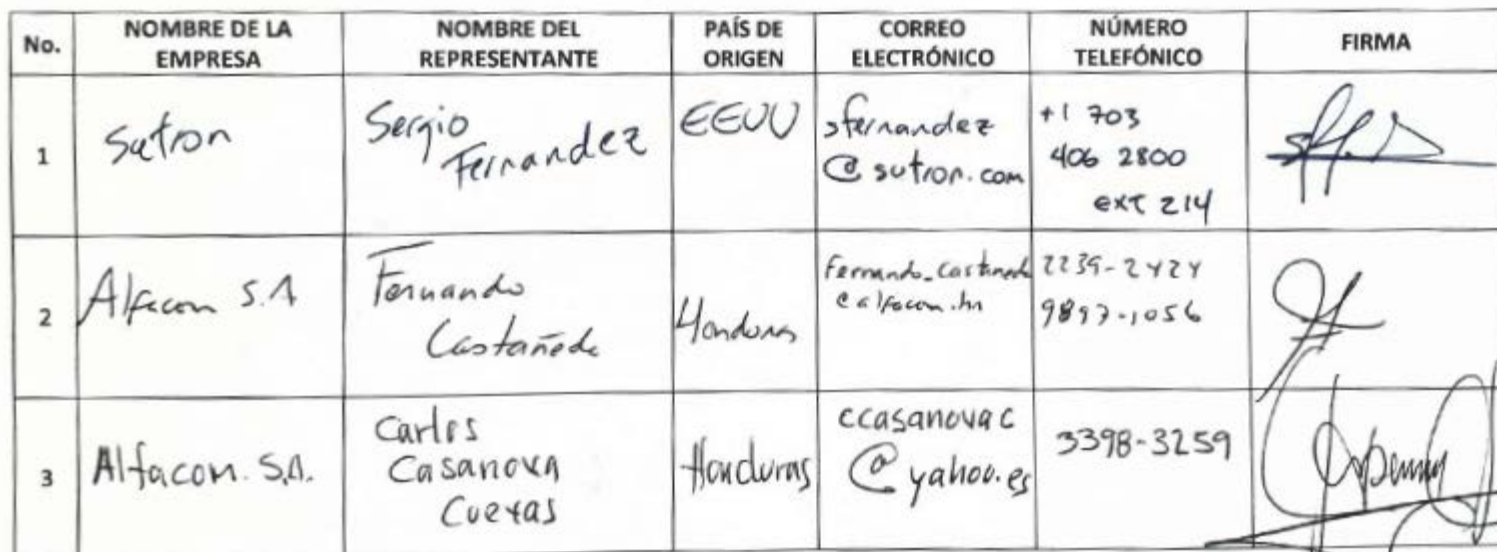 No. NOMBRE DE LA EMPRESA NOMBRE DEL REPRESENTANTE PAÍS DE ORIGEN CORREO ELECTRÓNICO NÚMERO TELEFÓNICO FIRMA
1 Sutron Sergio Fernandez EEUU sfernandez @sutron.com +1 703 406 2800 ext 214
2 Alfacom S.A Fernando Castañeda Honduras Fernando_Castaneda @alfacom.hn 2239-2424 9897-1056
3 Alfacom. S.A. Carlos Casanova Cuevas Honduras ccasanovac @yahoo.es 3398-3259